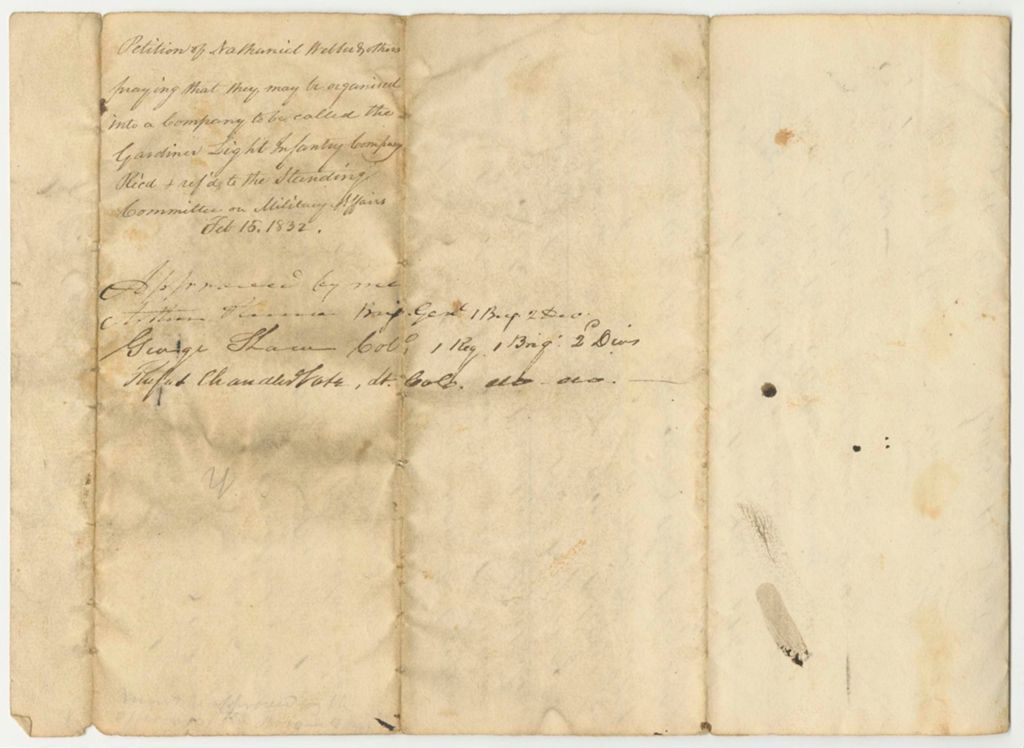 Petition of Nathaniel Webber & others
praying that they may be organised
into a Company to be called the
Gardiner Light Infantry Company
Rec'd & ref'd to the Standing
Committee on Military Affairs
Feb 15. 1832.
Approved by me
Brig. Genl 1 Brig 2 Div.
George Shaw Colo. 1 Reg 1 Brig. 2d Divis
Rufus Chandler Vose, Lt. Colo. do - do.